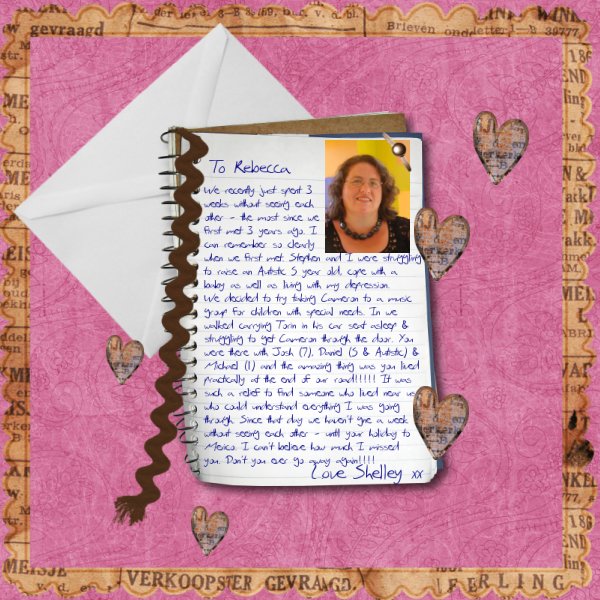 gevraagd
Brieven onder letter B-39777,
To Rebecca
We recently just spent 3
weeks without seeing each
other - the most since we
first met 3 years ago. I
can remember so clearly
when we first met. Stephen and I were struggling
to raise an Autistic 5 year old, cope with a
baby as well as living with my depression.
We decided to try taking Cameron to a music
group for children with special needs. In we
walked carrying Torin in his car seat asleep &
struggling to get Cameron through the door. You
were there with Josh (7), Daniel (5 & Autistic) &
Michael (1) and the amazing thing was you lived
practically at the end of our road!!!!! It was
such a relief to find someone who lived near us
who could understand everything I was going
through. Since that day we haven't gne a week
without seeing each other - until your holiday to
Mexico. I can't believe how much I missed
you. Don't you ever go away again!!!!
Love Shelley xx
MEISJE
VERKOOPSTER GEVRAAGD.
FERLING